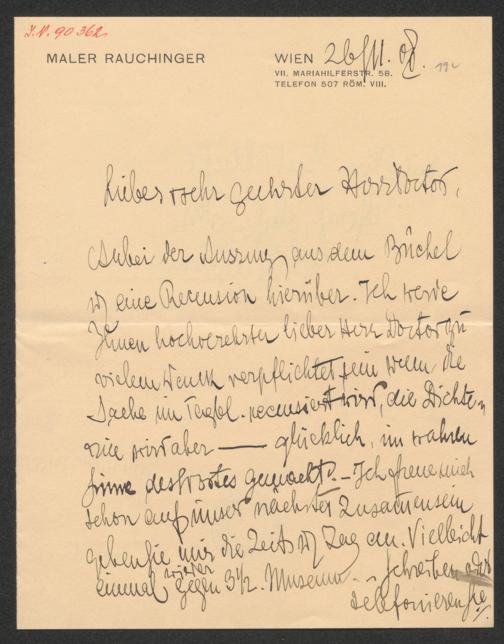 I.N. 90362
MALER RAUCHINGER
WIEN 26/11. 08.
VII. MARIAHILFERSTR. 58.
TELEFON 507 RÖM. VIII.
Lieber sehr geehrter Herr Doctor,
Anbei der Auszug aus dem Büchel
u eine Recension hierüber. Ich werde
Ihnen hochverehrter lieber Herr Doctor zu
vielem Dank verpflichtet sein wenn die
Sache im Tagbl. recensiert wird, die Dichte-
rin wird aber — glücklich, im wahren
Sinne des Wortes gemacht. – Ich freue mich
schon auf unser nächstes Zusammensein
geben Sie mir die Zeit u Tag an. Vielleicht
einmal wieder gegen 3½. Museum. – Schreiben oder
telefonieren Sie